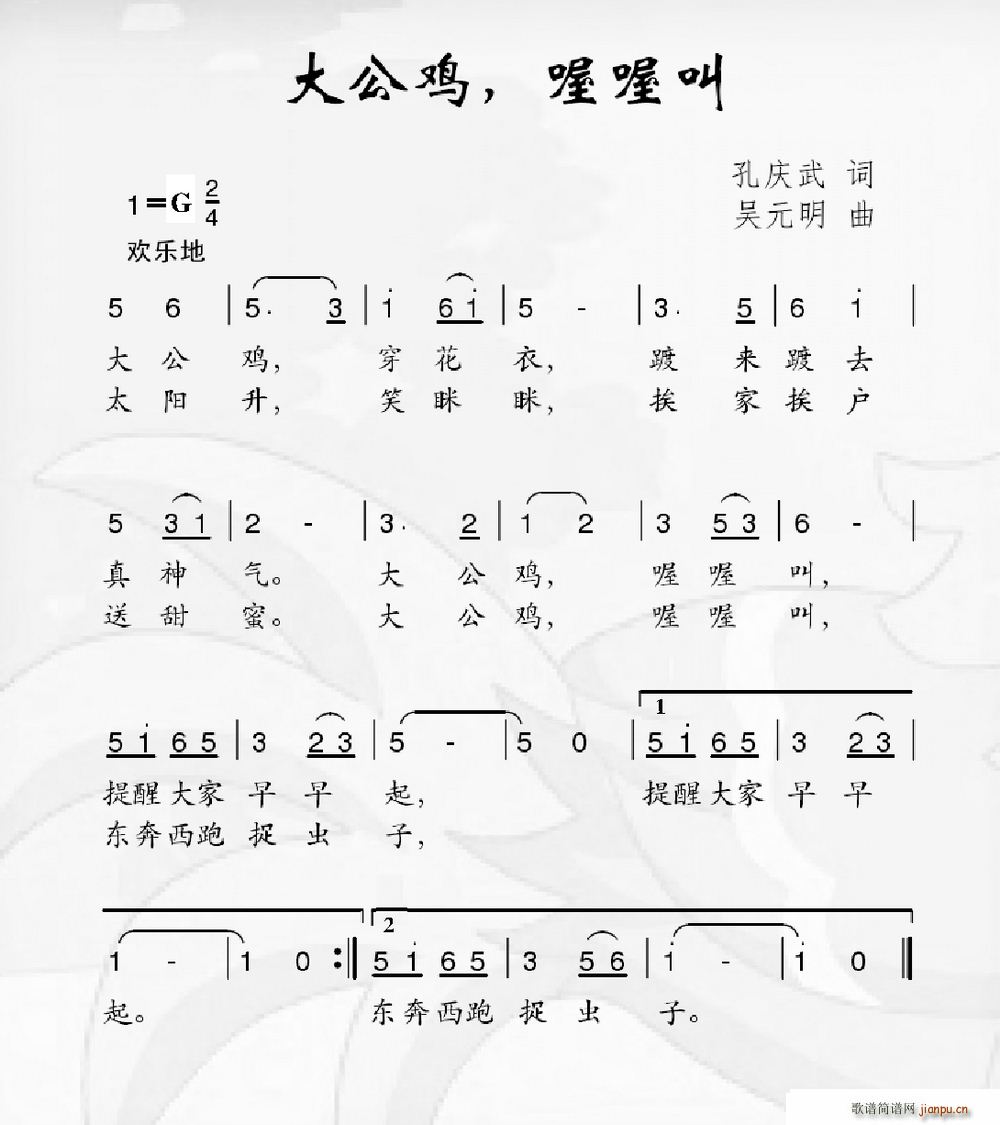 大公鸡，喔喔叫
孔庆武 词
1=G 2/4
吴元明 曲
欢乐地
5 6 | 5. 3 | i 6 i | 5 - | 3. 5 | 6 i |
大 公 鸡， 穿 花 衣， 踱 来 踱 去
太 阳 升， 笑 眯 眯， 挨 家 挨 户
5 3 1 | 2 - | 3. 2 | 1 2 | 3 5 3 | 6 - |
真 神 气。 大 公 鸡， 喔 喔 叫，
送 甜 蜜。 大 公 鸡， 喔 喔 叫，
1
5 i 6 5 | 3 2 3 | 5 - | 5 0 | 5 i 6 5 | 3 2 3 |
提醒大家 早 早 起， 提醒大家 早 早
东奔西跑 捉 虫 子，
2
1 - | 1 0 :|| 5 i 6 5 | 3 5 6 | i - | i 0 ||
起。 东奔西跑 捉 虫 子。
歌谱简谱网 jianpu.cn